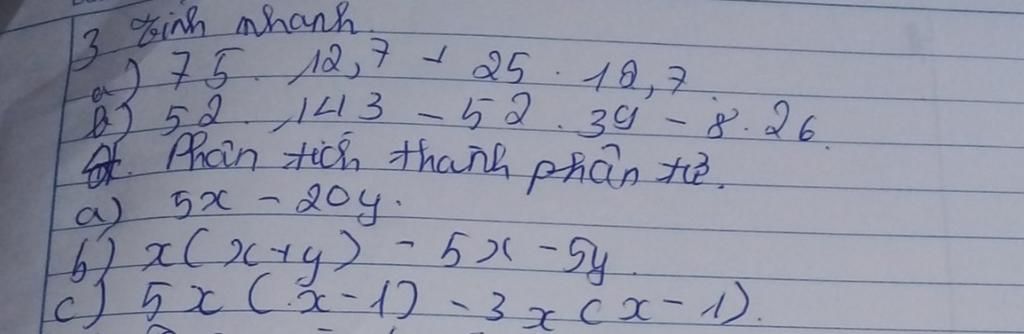 3 Tính nhanh.
a) 75. 12,7 + 25. 12,7
b) 52. 143 - 52. 39 - 8. 26.
Phân tích thành phân tử.
a) 5x - 20y.
b) x(x+y) - 5x - 5y
c) 5x(x-1) - 3x(x-1).